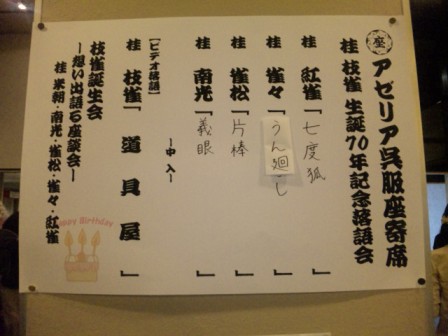 座
アゼリア呉服座寄席
桂 枝雀 生誕70年記念落語会
桂 紅雀「七度狐」
桂 雀々「うん廻し」
桂 雀松「片棒」
桂 南光「義眼」
ー中入ー
【ビデオ落語】
桂 枝雀「道具屋」
枝雀誕生会
ー想い出語ろ座談会ー
桂 米朝・南光・雀松・雀々・紅雀
Happy Birthday